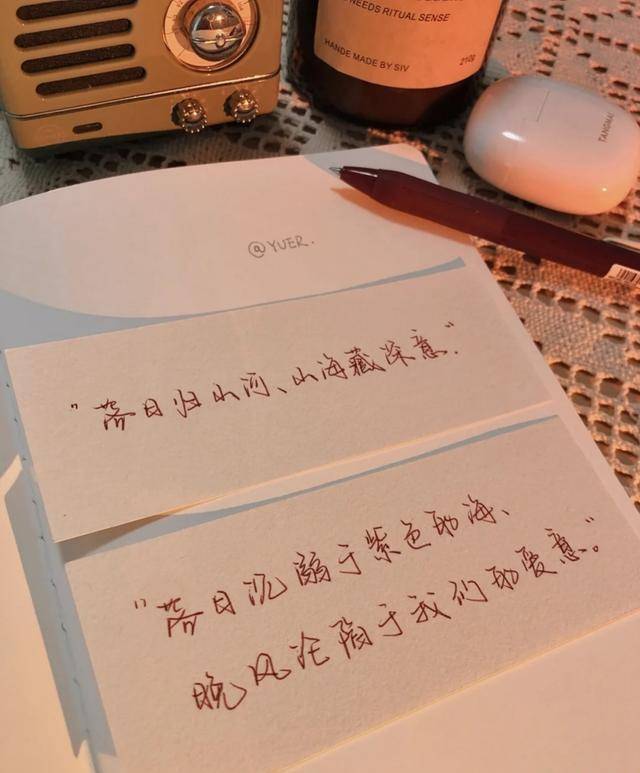 NEEDS RITUAL SENSE
HANDE MADE BY SIV
210g
TANGMAI
@YUER.
"落日归山河、山海藏深意."
"落日沉溺于紫色的海、
晚风沦陷于我们的爱意。"